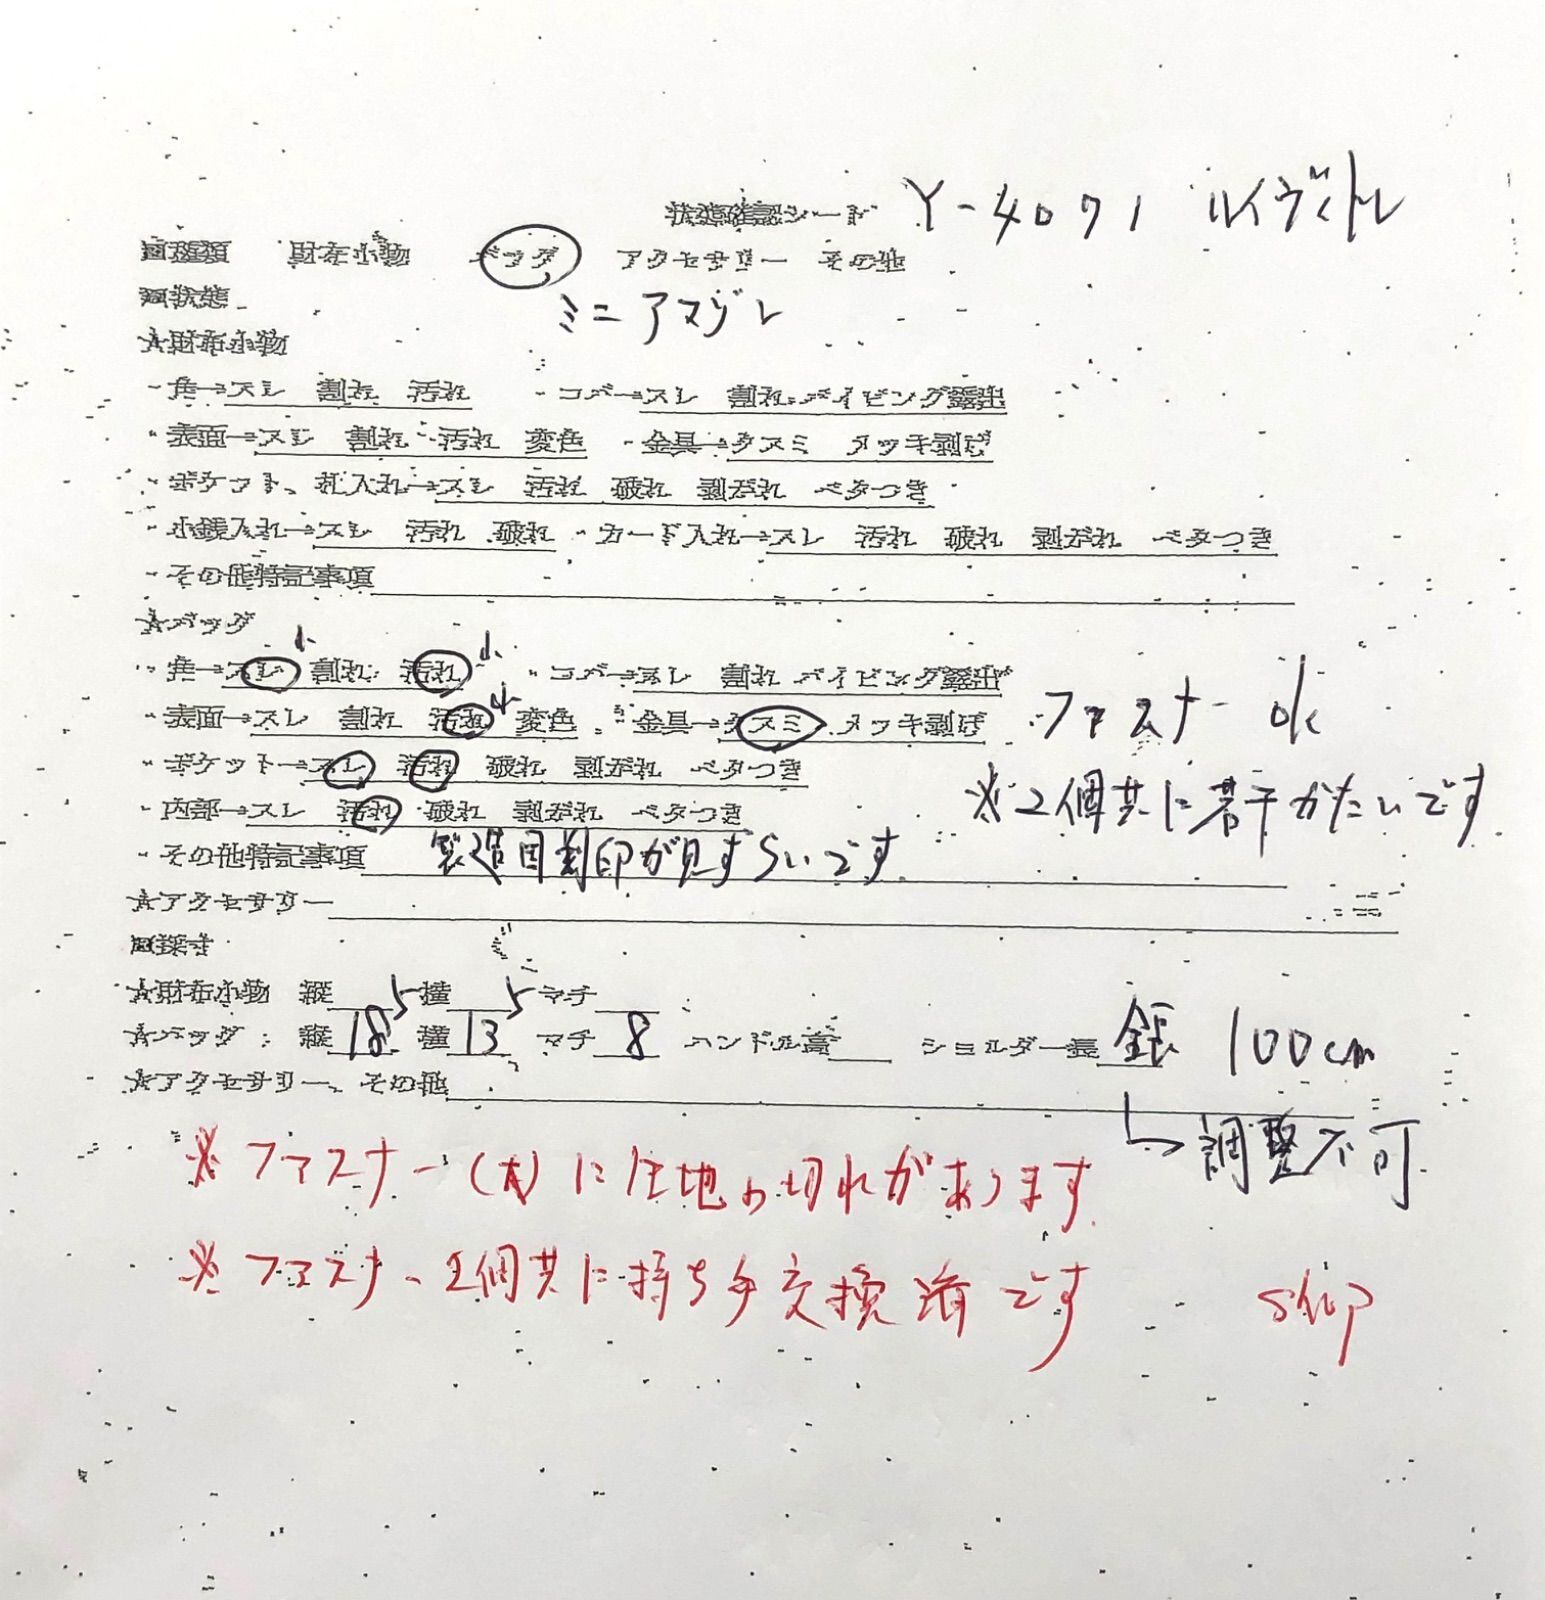 状態確認シート Y-4071 ルイヴィトン
■種類 財布小物 バッグ アクセサリー その他
■状態 ミニアマゾン
★財布小物
・角→スレ 割れ 汚れ ・コバ→スレ 割れ パイピング露出
・表面→スレ 割れ 汚れ 変色 ・金具→クスミ メッキ剥げ
・ポケット、札入れ→スレ 汚れ 破れ 剥がれ ベタつき
・小銭入れ→スレ 汚れ 破れ ・カード入れ→スレ 汚れ 破れ 剥がれ ベタつき
・その他特記事項
★バッグ
・角→スレ 小 割れ 汚れ 小 ・コバ→スレ 割れ パイピング露出
・表面→スレ 割れ 汚れ 小 変色 ・金具→クスミ メッキ剥げ ファスナー ok
・ポケット→スレ 汚れ 破れ 剥がれ ベタつき
※2個共に若干かたいです
・内部→スレ 汚れ 破れ 剥がれ ベタつき
・その他特記事項 製造国刻印が見ずらいです。
★アクセサリー
■採寸
★財布小物 縦 横 マチ
★バッグ 縦 18.5 横 13.5 マチ 8 ハンドル高 ショルダー長 全長 100cm
★アクセサリー、その他
↳調整不可
※ファスナー(大)に生地の切れがあります。
※ファスナー2個共に持ち手交換済です